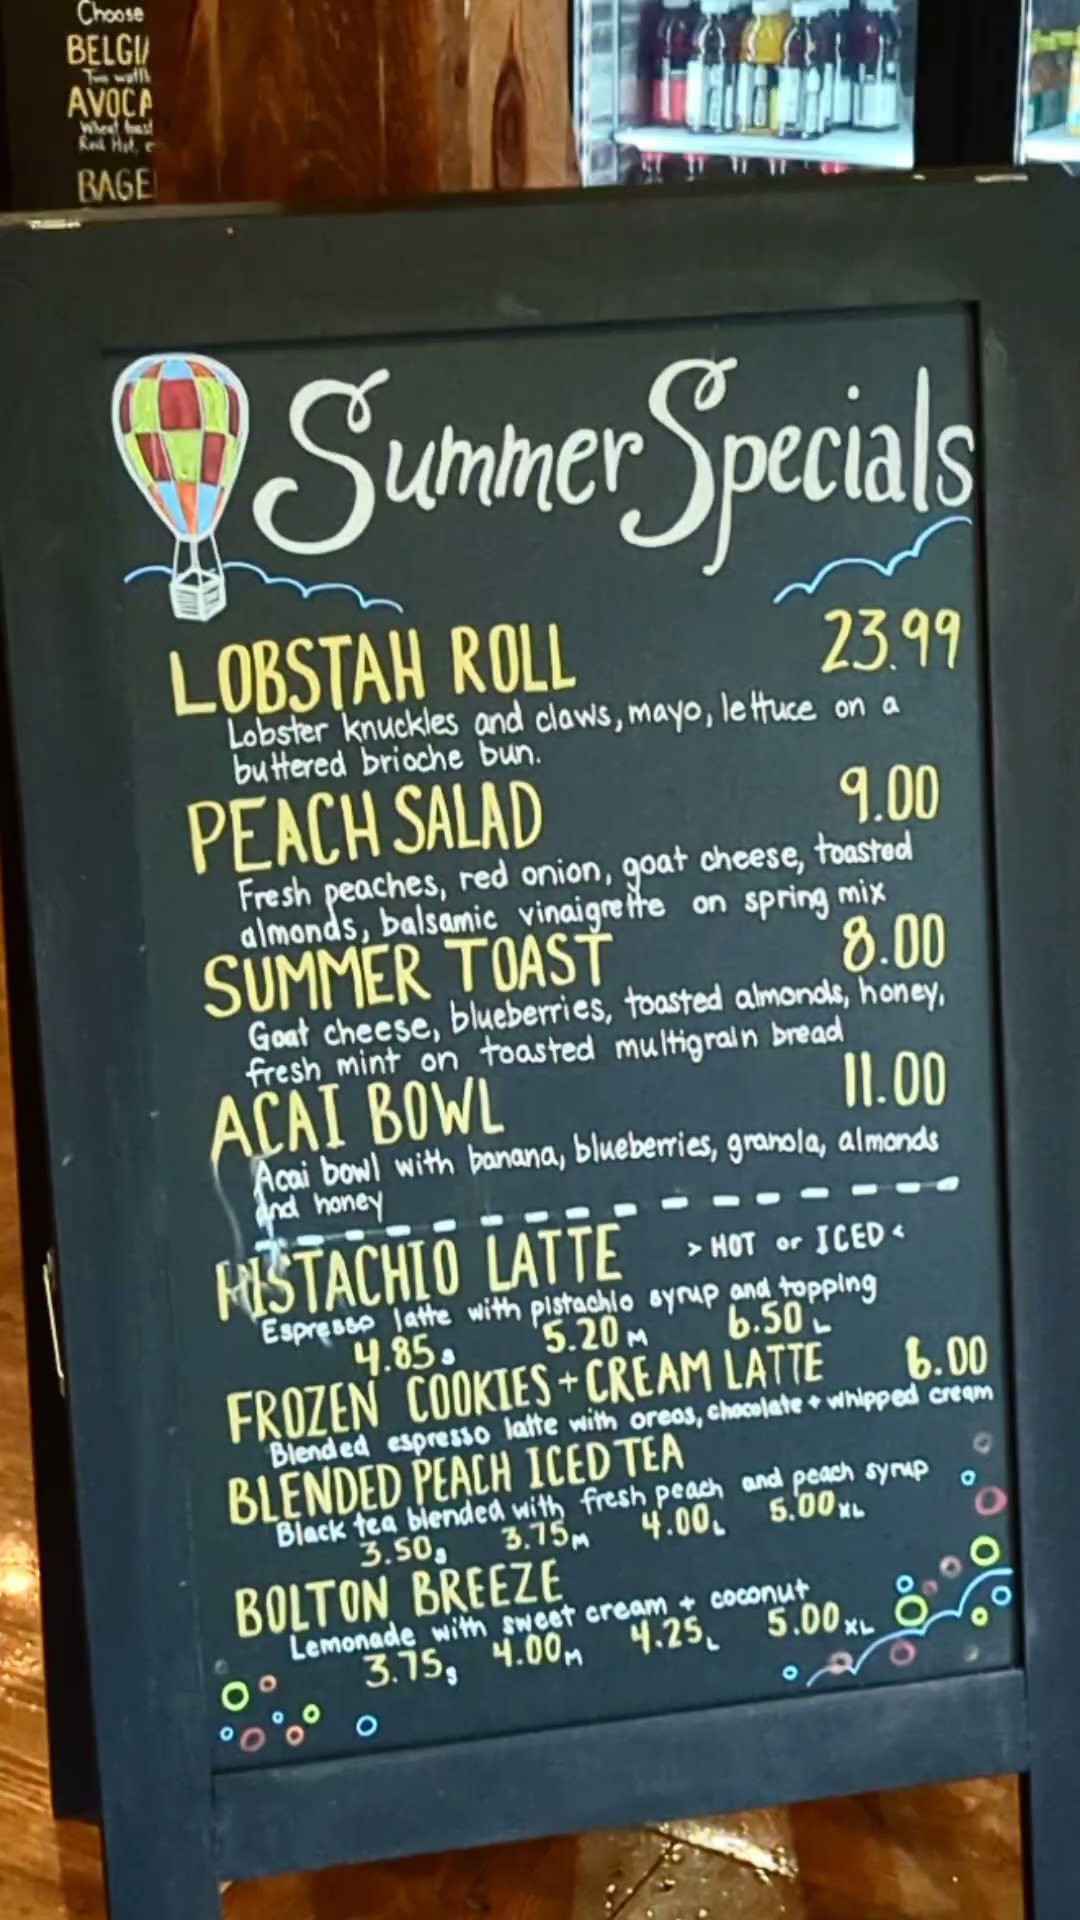 Choose
BELGI
Two waffl
AVOCA
Wheat toast
Red Hot,
BAGE
Summer Specials
LOBSTAH ROLL 23.99
Lobster knuckles and claws, mayo, lettuce on a
buttered brioche bun.
PEACH SALAD 9.00
Fresh peaches, red onion, goat cheese, toasted
almonds, balsamic vinaigrette on spring mix
SUMMER TOAST 8.00
Goat cheese, blueberries, toasted almonds, honey,
fresh mint on toasted multigrain bread
ACAI BOWL 11.00
Acai bowl with banana, blueberries, granola, almonds
and honey
PISTACHIO LATTE > HOT or ICED <
Espresso latte with pistachio syrup and topping
4.85 S 5.20 M 6.50 L
FROZEN COOKIES + CREAM LATTE 6.00
Blended espresso latte with oreos, chocolate + whipped cream
BLENDED PEACH ICED TEA
Black tea blended with fresh peach and peach syrup
3.50 S 3.75 M 4.00 L 5.00 XL
BOLTON BREEZE
Lemonade with sweet cream + coconut
3.75 S 4.00 M 4.25 L 5.00 XL